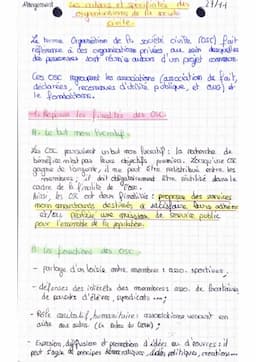 Management
Les acteurs et spécificités des
organisations de la société
civile
23/11
Le terme Organisation de la société civile (OSC) fait
référence à des organisations privées au sein desquelles
des personnes sont réunies autour d'un projet commun.
Ces OSC regroupent les associations (association de fait,
déclarées, reconnues d'utilité publique, et
les fondations.
I- les finalités des OSC
A. Le but non lucratif
Les OSC poursuivent un but non lucratif : la recherche de
bénéfices n'est pas leurs objectifs premiers. Lorsqu'une OSC
gagne de l'argent, il ne peut être redistribué entre les
membres ; il doit obligatoirement être réutilisé dans le
cadre de la finalité de l'OSC.
Ainsi, les OSC ont deux finalités : proposer des services
non marchands destinés à satisfaire leurs adhérents
et/ou une mission de service public
pour l'ensemble de la population.
B. Les fonctions des OSC
- partage d'un loisir entre membres : asso. sportives,
- défenses des intérêts des membres asso. de
de parents d'élèves, syndicats ...;
- Rôle caritatif, humanitaire : associations venant en
aide aux autres
- Expression, diffusion et promotion d'idées ou d'œuvres : il
peut s'agir de principes démocratiques, d'idées politiques, créations